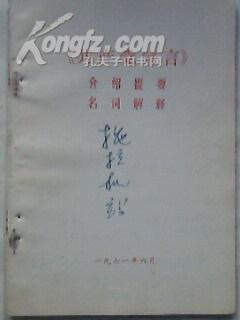 Kongfz.com
孔夫子旧书网
宣言》
介绍提要
名词解释
拖拉机站
一九七一年六月